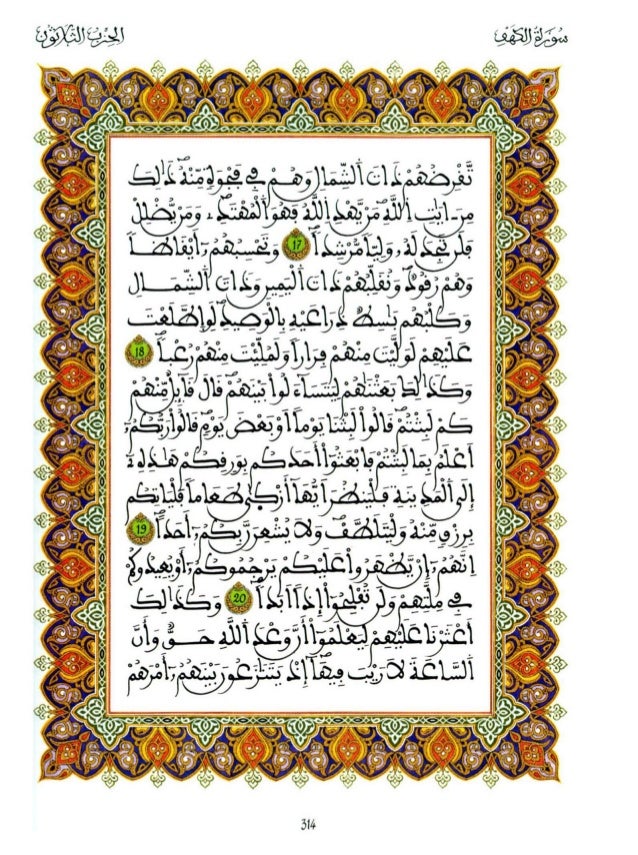 سُورَةُ الكَهْفِ
الحِزْبُ الثَّلَاثُونَ
تَّقْرِضُهُمْ ذَاتَ اَلشِّمَالِ وَهُمْ فِے فَجْوَةٍ مِّنْهُ ذَٰلِكَ
مِنَ ـايَٰتِ اِللَّهِ مَنْ يَّهْدِ اِللَّهُ فَهُوَ اَلْمُهْتَدِ ۦ وَمَنْ يُّضْلِلْ
فَلَن تَجِدَ لَهُۥ وَلِيّاً مُّرْشِداً 17 وَتَحْسِبُهُمُۥٓ أَيْقَاظاً
وَهُمْ رُقُودٌ وَنُقَلِّبُهُمْ ذَاتَ اَلْيَمِينِ وَذَاتَ اَلشِّمَالِ
وَكَلْبُهُم بَٰسِطٌ ذِرَاعَيْهِ بِالْوَصِيدِ لَوِ اِطَّلَعْتَ
عَلَيْهِمْ لَوَلَّيْتَ مِنْهُمْ فِرَاراً وَلَمُلِّئْتَ مِنْهُمْ رُعْباً 18
وَكَذَٰلِكَ بَعَثْنَٰهُمْ لِيَتَسَآءَلُواْ بَيْنَهُمْ قَالَ قَآئِلٌ مِّنْهُمْ
كَمْ لَبِثْتُمْ قَالُواْ لَبِثْنَا يَوْماً اَوْ بَعْضَ يَوْمٍ قَالُواْ رَبُّكُمُۥٓ
أَعْلَمُ بِمَا لَبِثْتُمْ فَابْعَثُوٓاْ أَحَدَكُم بِوَرِقِكُمْ هَٰذِهِۦٓ
إِلَى اَلْمَدِينَةِ فَلْيَنظُرَ اَيُّهَآ أَزْكَىٰ طَعَاماً فَلْيَاتِكُم
بِرِزْقٍ مِّنْهُ وَلْيَتَلَطَّفْ وَلَا يُشْعِرَنَّ بِكُمُۥٓ أَحَداً 19
اِنَّهُمُۥٓ إِنْ يَّظْهَرُواْ عَلَيْكُمْ يَرْجُمُوكُمُۥٓ أَوْ يُعِيدُوكُمْ
فِے مِلَّتِهِمْ وَلَن تُفْلِحُوٓاْ إِذاً اَبَداً 20 وَكَذَٰلِكَ
أَعْثَرْنَا عَلَيْهِمْ لِيَعْلَمُوٓاْ أَنَّ وَعْدَ اَللَّهِ حَقٌّ وَأَنَّ
اَلسَّاعَةَ لَا رَيْبَ فِيهَآ إِذْ يَتَنَٰزَعُونَ بَيْنَهُمُۥٓ أَمْرَهُمْ
314